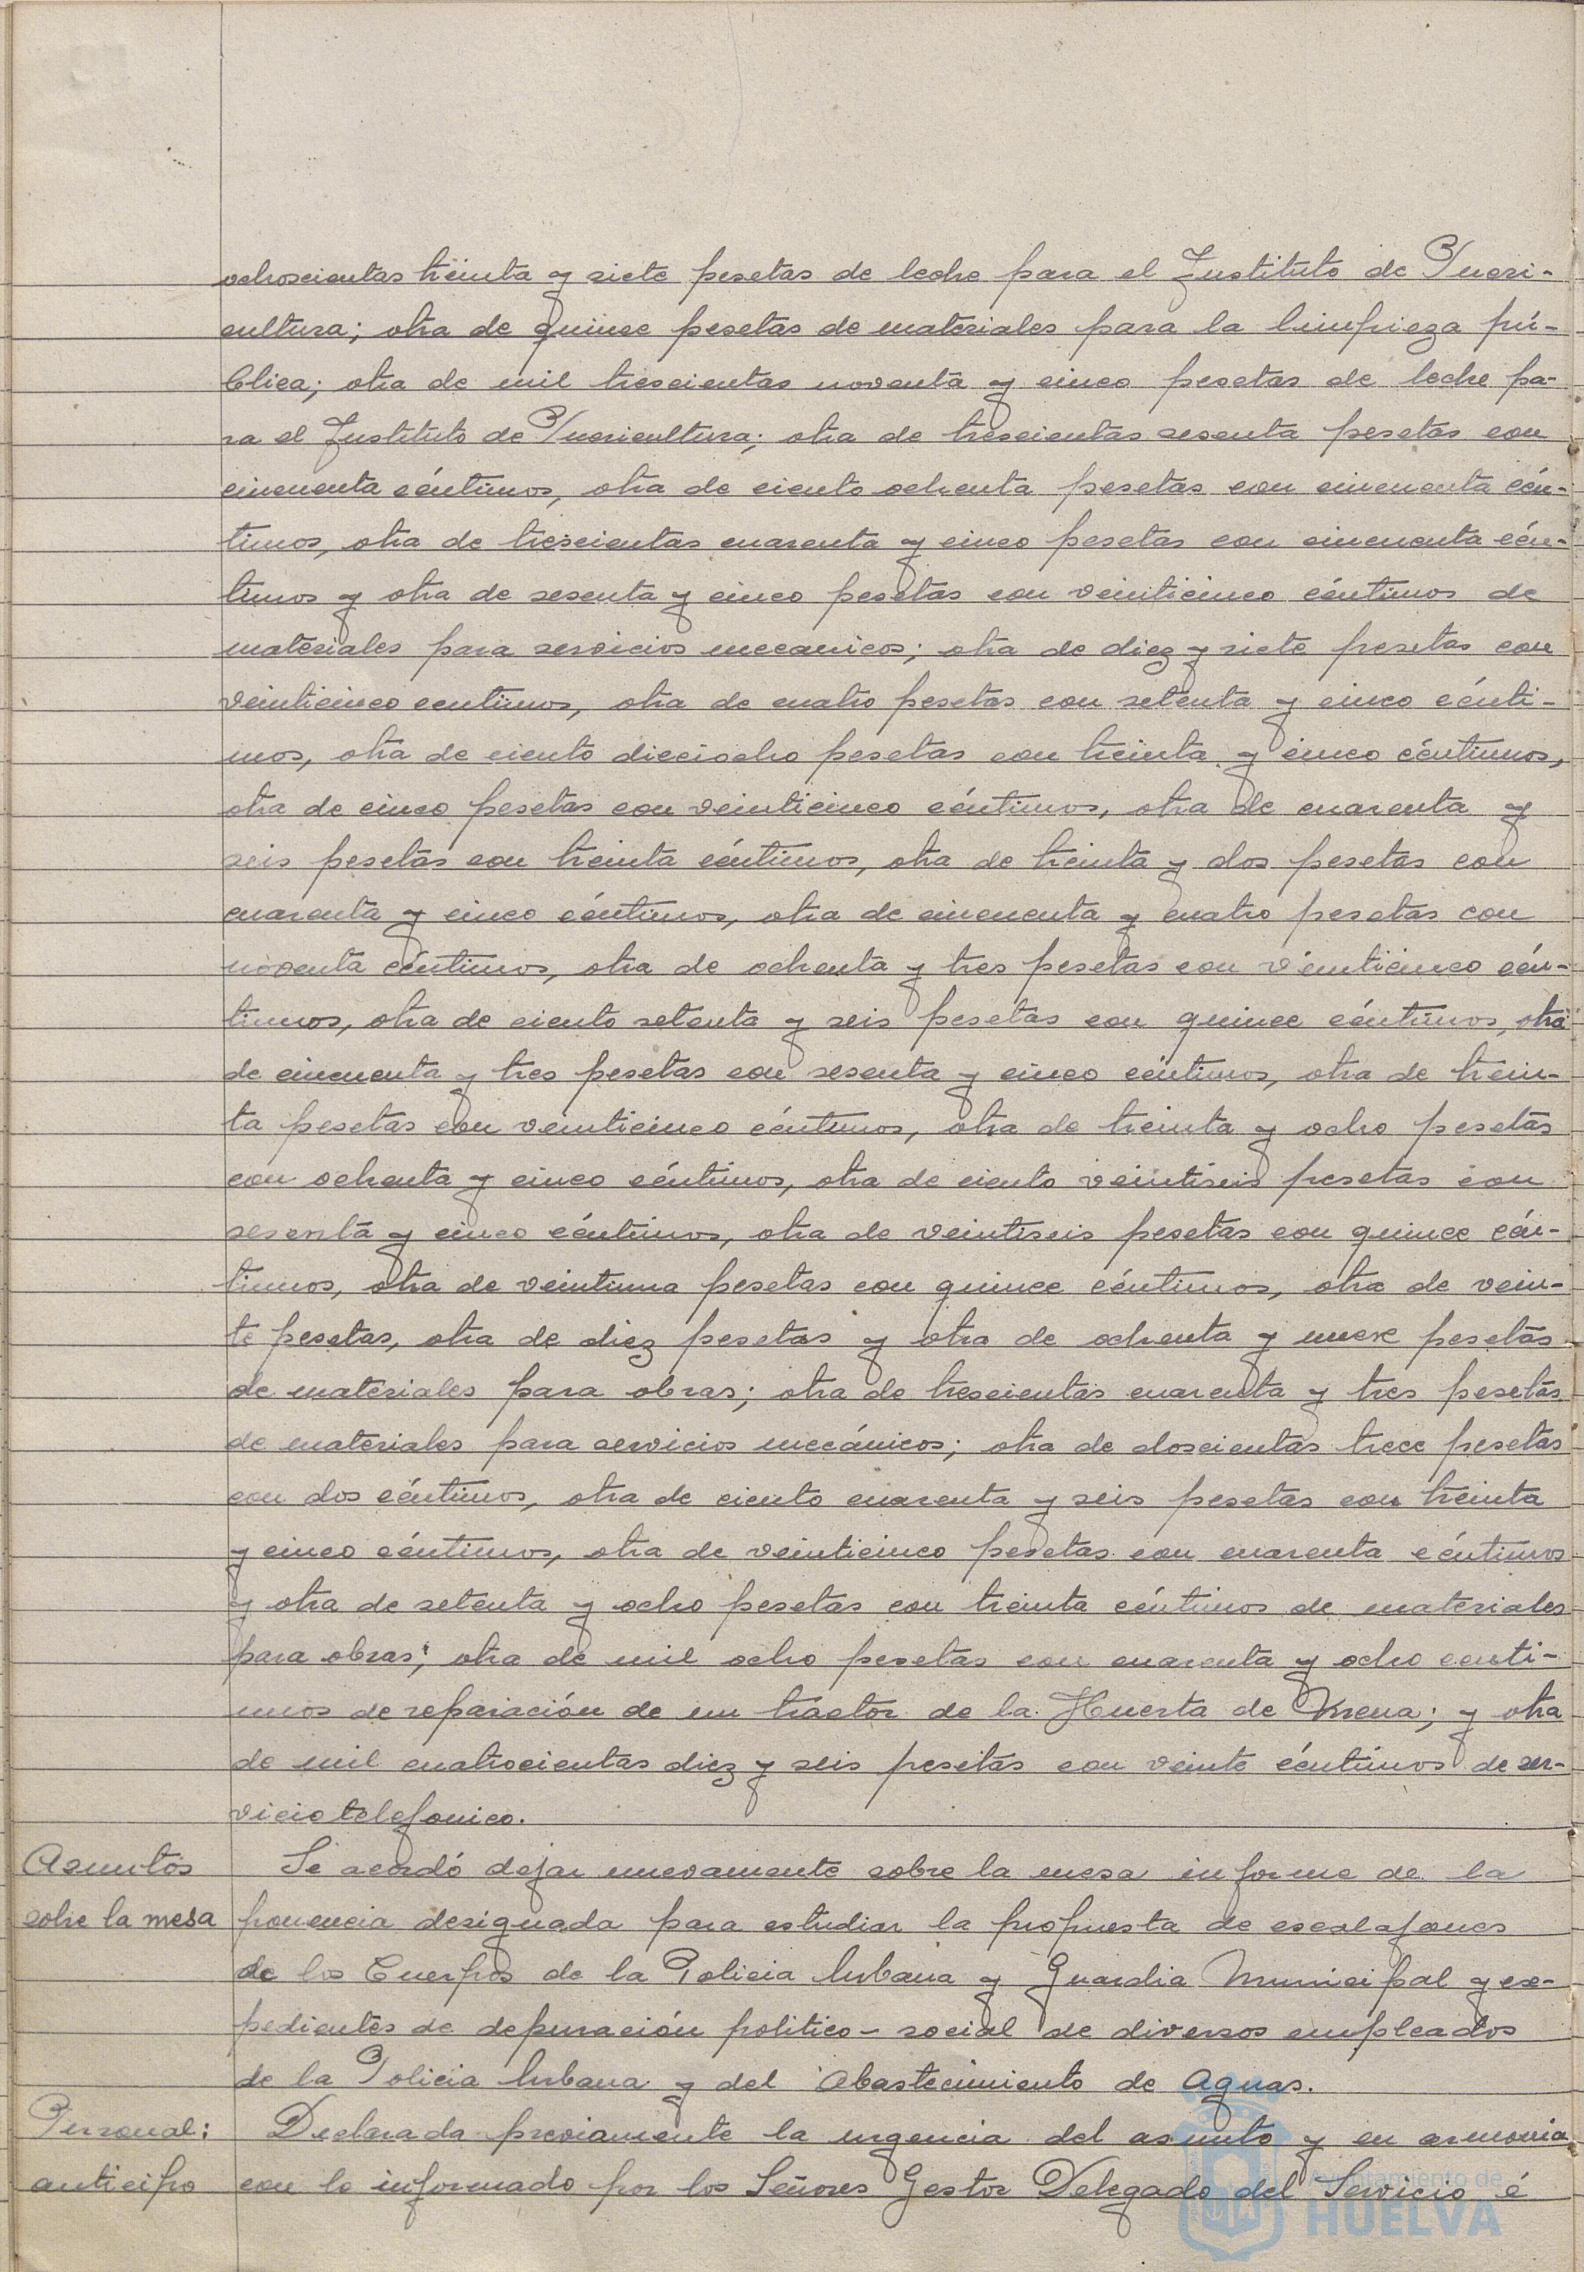 ochoscientas treinta y siete pesetas de leche para el Instituto de Pueri-
cultura; otra de quince pesetas de materiales para la limpieza pú-
blica; otra de mil trescientas noventa y cinco pesetas de leche pa-
ra el Instituto de Puericultura; otra de trescientas sesenta pesetas con
cincuenta céntimos, otra de ciento ochenta pesetas con cincuenta cén-
timos, otra de trescientas cuarenta y cinco pesetas con cincuenta cén-
timos y otra de sesenta y cinco pesetas con veinticinco céntimos de
materiales para servicios mecanicos; otra de diez y siete pesetas con
veinticinco centimos, otra de cuatro pesetas con setenta y cinco cénti-
mos, otra de ciento dieciocho pesetas con treinta y cinco céntimos,
otra de cinco pesetas con veinticinco céntimos, otra de cuarenta y
seis pesetas con treinta céntimos, otra de treinta y dos pesetas con
cuarenta y cinco céntimos, otra de cincuenta y cuatro pesetas con
noventa céntimos, otra de ochenta y tres pesetas con veinticinco cén-
timos, otra de ciento setenta y seis pesetas con quince céntimos, otra
de cincuenta y tres pesetas con sesenta y cinco céntimos, otra de trein-
ta pesetas con veinticinco céntimos, otra de treinta y ocho pesetas
con ochenta y cinco céntimos, otra de ciento veintiseis pesetas con
sesenta y cinco céntimos, otra de veintiseis pesetas con quince cén-
timos, otra de veintiuna pesetas con quince céntimos, otra de vein-
te pesetas, otra de diez pesetas y otra de ochenta y nueve pesetas
de materiales para obras; otra de trescientas cuarenta y tres pesetas
de materiales para servicios mecánicos; otra de doscientas trece pesetas
con dos céntimos, otra de ciento cuarenta y seis pesetas con treinta
y cinco céntimos, otra de veinticinco pesetas con cuarenta céntimos
y otra de setenta y ocho pesetas con treinta céntimos de materiales
para obras; otra de mil ocho pesetas con cuarenta y ocho centi-
mos de reparación de un tractor de la Huerta de Mena; y otra
de mil cuatrocientas diez y seis pesetas con veinte céntimos de ser-
vicio telefonico.
Asuntos
sobre la mesa
Se acordó dejar nuevamente sobre la mesa informe de la
ponencia designada para estudiar la propuesta de escalafones
de los Cuerpos de la Policia Urbana y Guardia Municipal y ex-
pedientes de depuración politico-social de diversos empleados
de la Policia Urbana y del Abastecimiento de Aguas.
Personal:
anticipo
Declarada previamente la urgencia del asunto y en armonia
con lo informado por los Señores Gestor Delegado del Servicio é
Ayuntamiento de
HUELVA